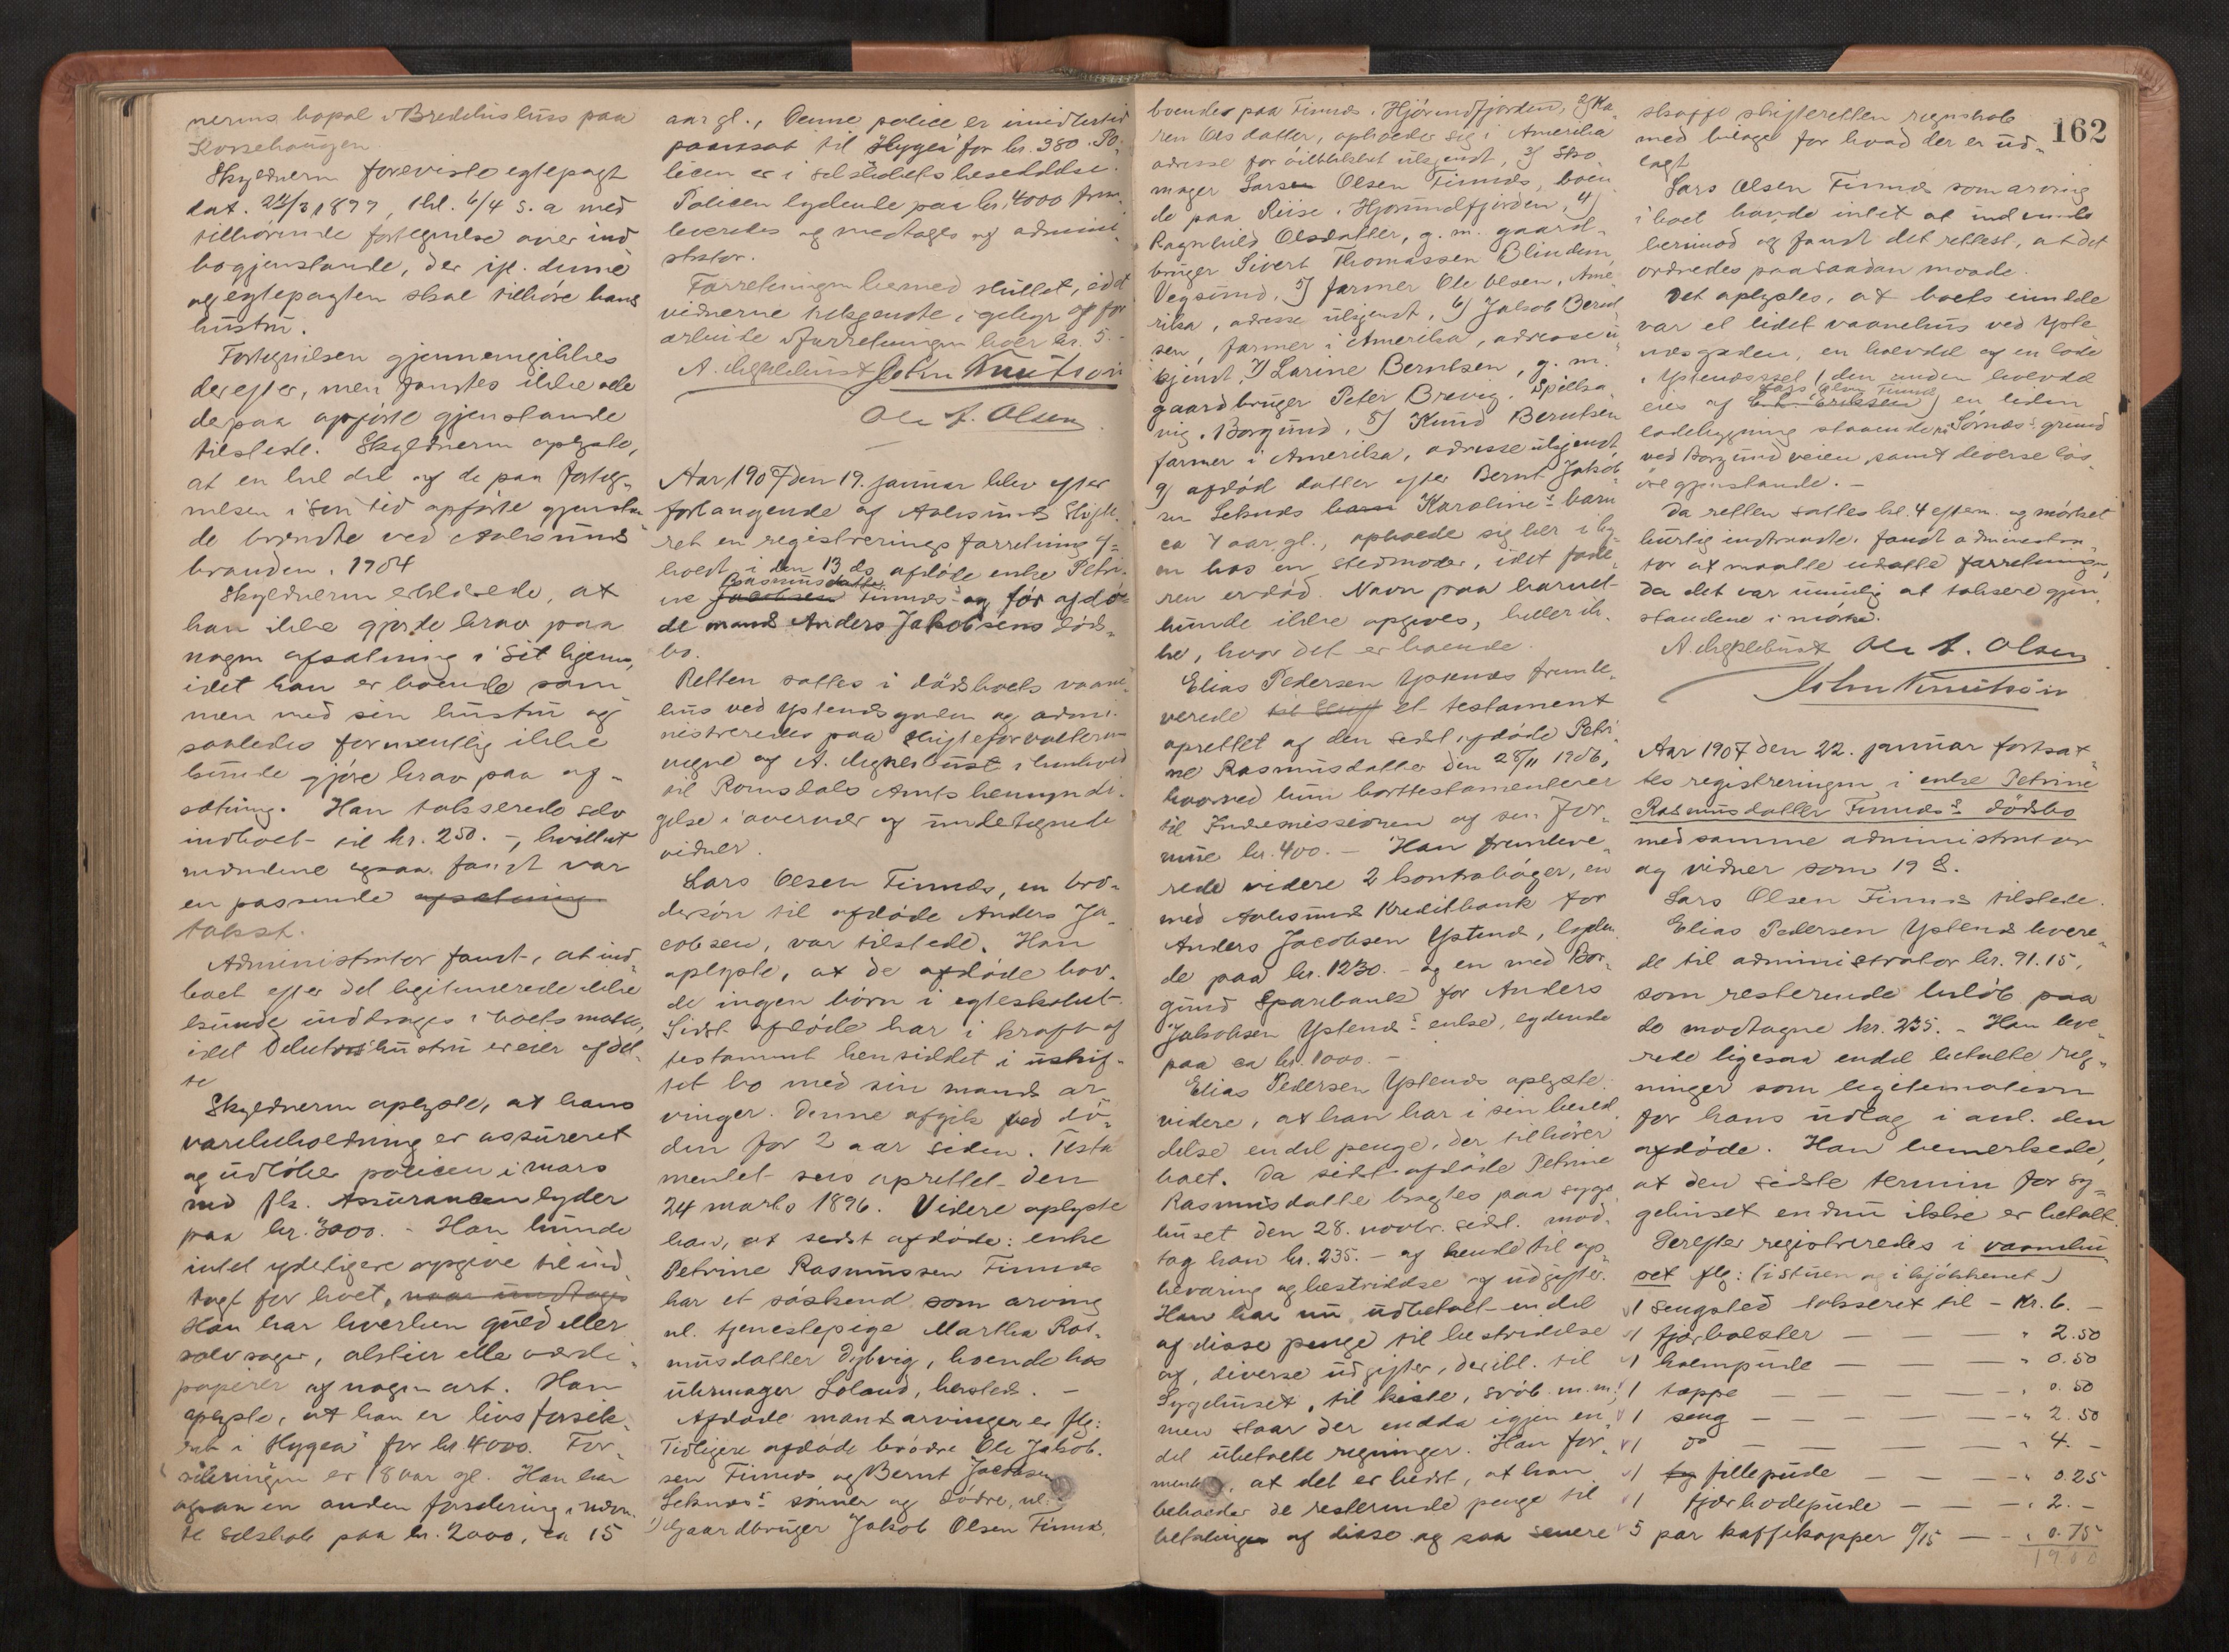 nerens bopal i Bredelis hus paa
Korsehaugen.
Skyldneren foreviste egtepagt
dat. 24/3 1899, thl. 6/4 s. a med
tilhörende fortegnelse over ind
bogjenstande, der ifl. denne
og egtepagten skal tilhöre hans
hustru.
Fortegnelsen gjennemgikkes
derefter, men fandtes ikke alle
de paa opförte gjenstande
tilstede. Skyldneren oplyste,
at en hel del af de paa forteg-
nelsen i sin tid opförte gjenstan
de brændte ved Aalesunds
branden i 1904
Skyldneren erklærede, at
han ikke gjorde krav paa
nogen afsætning i sit hjem,
idet han er boende sam
men med sin hustru og
saaledes formentlig ikke
kunde gjöre krav paa af-
sætning. Han takserede selv
indboet til kr. 250.-, hvilket
mændene ogsaa fandt var
en passende afsætning
takst.
Administrator fandt, at ind-
boet efter det legitimerede ikke
kunde inddrages i boets masse,
idet hustru er eier af det-
te
Skyldneren oplyste, at hans
varebeholdning er assureret
og udlöber policen i mars
md fk. Assurancen lyder
paa kr. 3000.- Han kunde
intet yderligere opgive til ind
tægt for boet, naar undtages
Han har hverken guld eller
sölvsager, aktier eller værdi-
papirer af nogen art. Han
oplyste, at han er livsforsik-
ret i "Hygea" for kr. 4000. For-
sikringen er 18 aar gl. Han har
ogsaa en anden forsikring i nævn-
te selskab paa kr. 2000, ca 15
aar gl., Denne police er imidlertid
paavsat til "Hygea" for kr. 380. Po-
licen er i selskabets besiddelse.
Policen lydende paa kr. 4000 frem-
leveredes og medtages af admini-
strator.
Forretningen hermed sluttet, idet
vidnerne tilkjendte i godtgj. for
arbeide i forretningen hver kr. 5.-
A. Megelbust John Knutson
Ole A. Olsen
Aar 1907 den 19. januar blev efter
forlangende af Aalesunds Skifte-
ret en registreringsforretning af-
holdt i den 13 ds afdöde enke Petri-
Rasmusdatter
ne Jacobsen Finnæs og för afdö-
de mand Anders Jakobsens döds-
bo.
Retten sattes i dödsboets vaane-
hus ved Ystenesgaden og admi-
nistreredes paa skifteforvalterens
vegne af A. Megelbust i henhold
til Romsdals Amts bemyndi-
gelse i overvær af undertegnede
vidner.
Lars Olsen Finnæs, en bro-
dersön til afdöde Anders Ja-
cobsen, var tilstede. Han
oplyste, at de afdöde hav-
de ingen börn i egteskabet.
Sidst afdöde har i kraft af
testament hensiddet i uskif-
tet bo med sin mands ar
vinger. Denne afgik ved dö-
den for 2 aar siden. Testa
mentet sees oprettet den
24 marts 1896. Videre oplyste
han, at sidst afdöde: enke
Petrine Rasmussen Finnæs
har et söskend som arving
nl. tjenestepige Martha Ras-
musdatter Dybvig, boende hos
uhrmager Loland, hersteds. -
Afdöde mands arvinger er flg:
Tidligere afdöde brödre Ole Jakob-
sen Finnæs og Bernt Jacobsen
Seknæs's sönner og dödre, nl:
1) Gaardbruger Jakob Olsen Finnæs,
boendes paa Finnæs i Hjörundfjorden, 2) Ka-
ren Olsdatter, opholder sig i Amerika
adresse for öieblikket ukjendt, 3) Sko-
mager Lars Olsen Finnæs, boen
de paa Riise i Hjorundfjorden, 4)
Ragnhild Olsdatter, g. m. gaard-
bruger Sivert Thomassen Blindem,
Vegsund, 5) farmer Ole Olsen, Ame-
rika, adresse ukjendt, 6) Jakob Bernt
sen, farmer i Amerika, adresse u-
kjendt, 7) Larine Berntsen, g. m.
gaardbruger Peter Brevig, Spilka-
vig, Borgund, 8) Knud Berntsen
farmer i Amerika, adresse ukjendt
9) afdöd datter efter Bernt Jakob
sen Seknæs barn Karoline's barn
ca 4 aar gl., opholde sig her i by-
en hos en stedmoder, idet fade-
ren er död. Navn paa barnet
kunde ikke opgives, heller ik-
ke, hvor det er boende.
Elias Pedersen Ystenæs frem
verede et testament
oprettet af den sidst afdöde Petri-
ne Rasmusdatter den 28/11 1906,
hvorved hun borttestamenterer
til Indremissionen af sin for-
mue kr. 400.- Han frembleve-
rede videre 2 kontraböger, en
med Aalesunds Kreditbank for
Anders Jacobsen Ystenæs, lyden
de paa kr. 1230.- og en med Bor-
gund Sparebank for Anders
Jakobsen Ystenæs's enke, lydende
paa ca kr. 1000.-
Elias Pedersen Ystenæs oplyste
videre, at han har i sin besid
delse endel penge, der tilhörer
boet. Da sidst afdöde Petrine
Rasmusdatter bragtes paa syge
huset den 28. novbr. sidst. mod-
tog han kr. 235.- af hende til op-
bevaring og bestridelse af udgifter.
Han har nu udbetalt endel
af disse penge til bestridelse
af diverse udgifter, deribl. til
Sygehuset, til kiste, svöb m. m;
men staar der endda igjen en
del ubetalte regninger. Han for-
mente, at det er bedst, at han
beholder de resterende penge til
betaling af disse og saa senere
162
skaffe skifteretten regnskab
med bilage for hvad der er ud-
lagt.
Lars Olsen Finnæs som arving
i boet havde intet at indvende
herimod og fandt det rettest, at det
ordnedes paa saadan maade.
Det oplystes, at boets eiendele
var et lidet vaanehus ved Yste
næsgaden, en halvdel af en lade
i Ystenæsset (den anden halvdel
Lars Olsen Finnæs
eies af E. L. Eriksen) en liden
ladebygning staaende i Sörnæs's grund
ved Borgundveien, samt diverse lös-
öre gjenstande. -
Da retten sattes kl. 4 efterm. og mörket
hurtig indtraadte, fandt administra-
tor at maatte udsætte forretningen,
da det var umulig at taksere gjen-
standene i mörke.
A. Megelbust Ole A. Olsen
John Knutson
Aar 1907 den 22. januar fortsat-
tes registreringen i enke Petrine
Rasmusdatter Finnæs's dödsbo
med samme administrator
og vidner som 19 ds.
Lars Olsen Finnæs tilstede.
Elias Pedersen Ystenæs levere-
de til administrator kr. 91.15,
som resterende belöb paa
de modtagne kr. 235.- Han leve-
rede ligesaa endel betalte reg-
ninger som legitimation
for hans udlæg i anl. den
afdöde. Han bemerkede,
at den sidste termin for sy-
gehuset endnu ikke er betalt.
Derefter registreredes i vaanehu-
set flg: (i stuen og i kjökkenet)
1 sengsted takseret til - Kr. 6.-
1 fjærbolster — — " 2.50
1 halmpude — — " 0.50
1 tæppe — — " 0.50
1 seng — — " 2.50
1 do — — " 4.-
1 fillepude — — " 0.25
1 fjærhodepude — — " 2.-
5 par kaffekopper a/15 — " 0.75
19.00